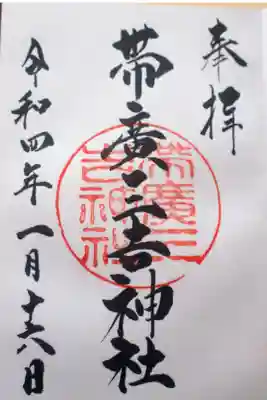 奉拝
帯廣三吉神社
帯廣三
吉神社
令和四年一月十六日